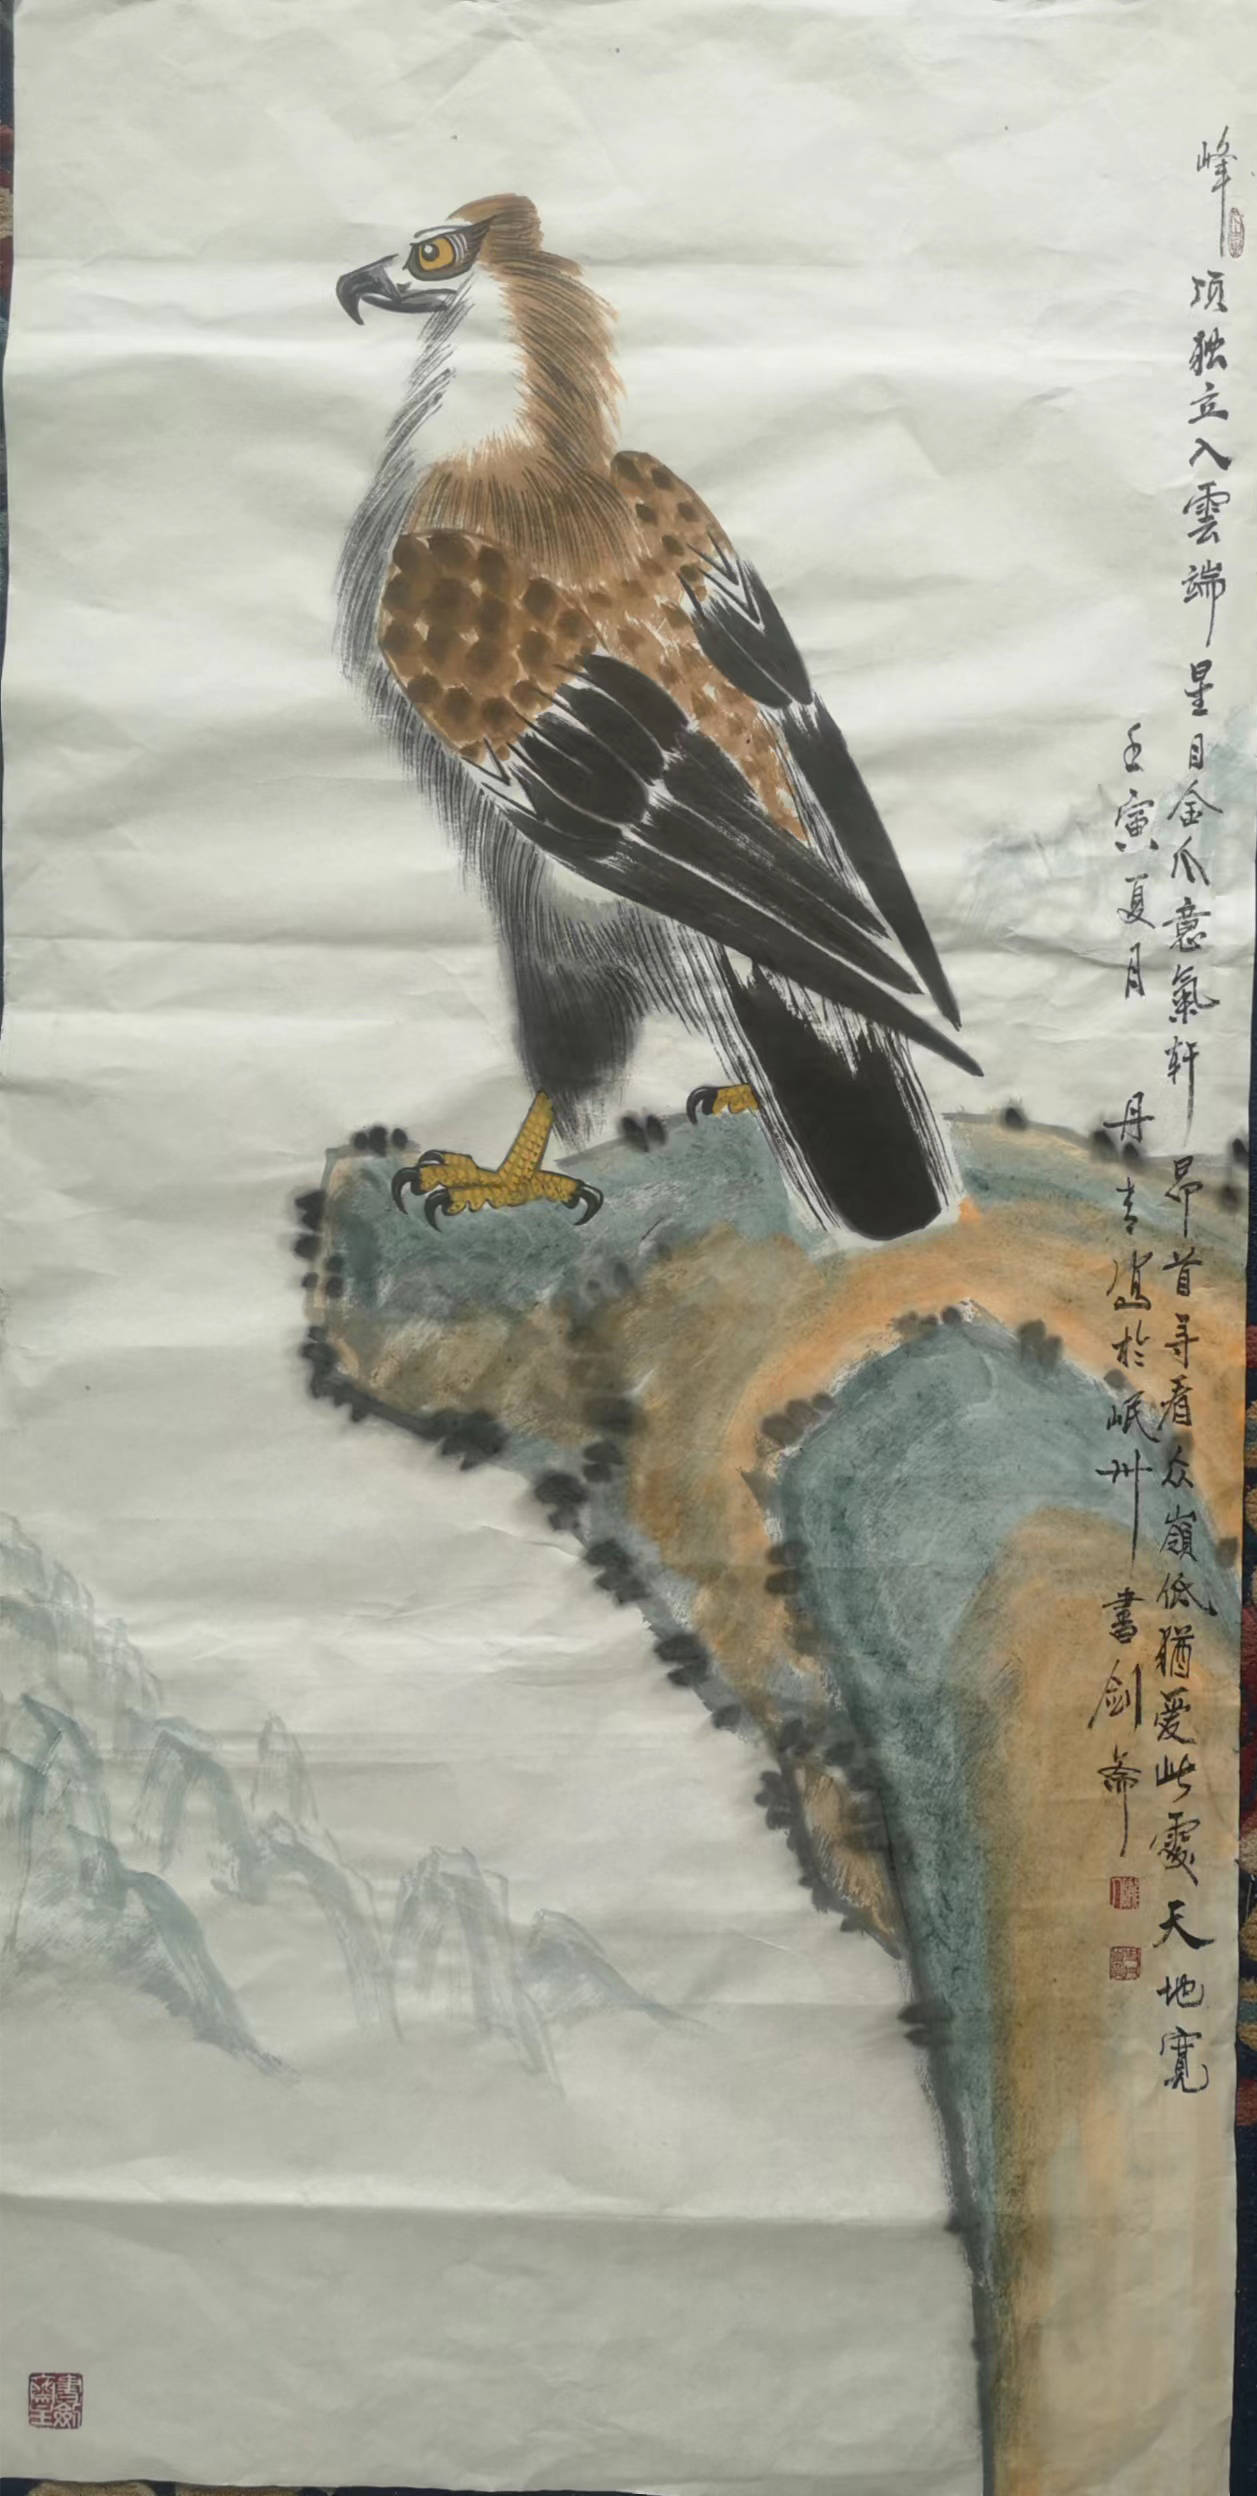 峰顶独立入雲端星目金爪意氣轩昂首寻看众嶺低猶爱此處天地寬
壬寅夏月丹青寫於岷州書劍斋
書劍斋主